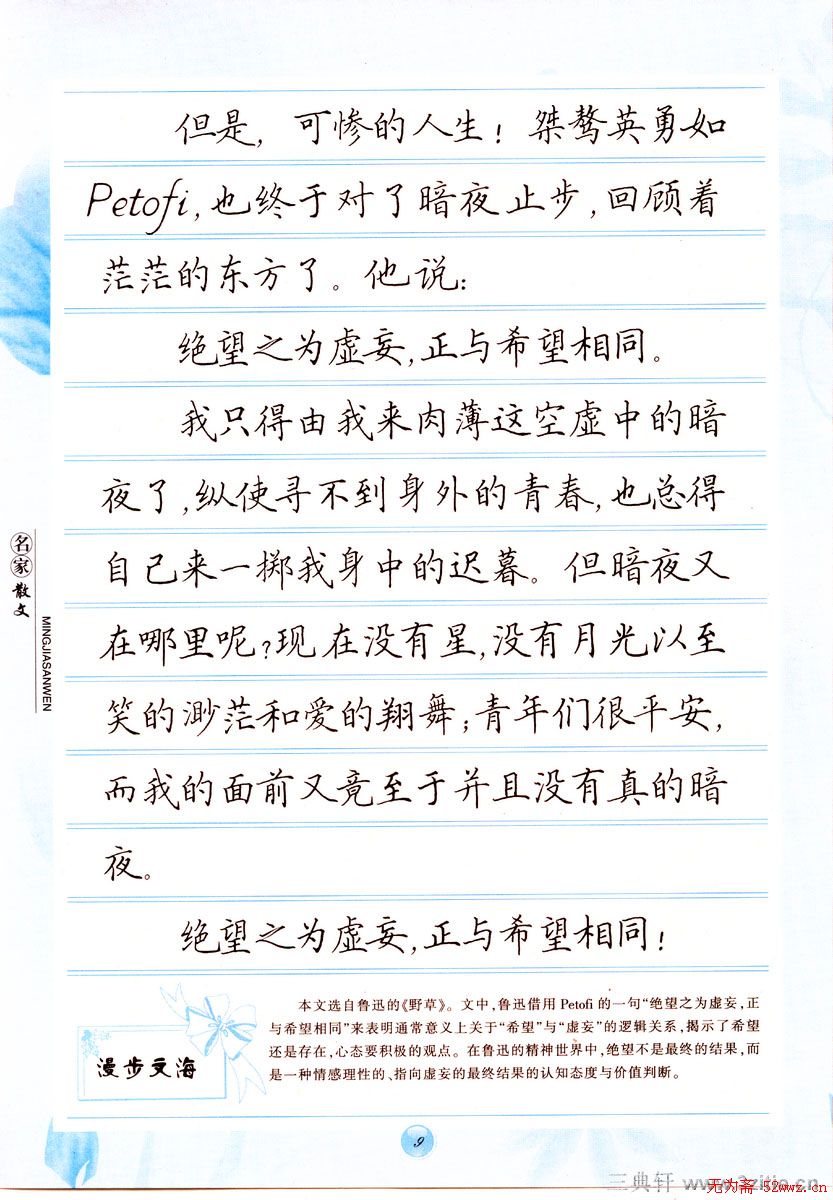 但是，可惨的人生！桀骜英勇如
Petofi，也终于对了暗夜止步，回顾着
茫茫的东方了。他说：
绝望之为虚妄，正与希望相同。
我只得由我来肉薄这空虚中的暗
夜了，纵使寻不到身外的青春，也总得
自己来一掷我身中的迟暮。但暗夜又
在哪里呢？现在没有星，没有月光以至
笑的渺茫和爱的翔舞；青年们很平安，
而我的面前又竟至于并且没有真的暗
夜。
绝望之为虚妄，正与希望相同！
名家散文
MINGJIASANWEN
漫步文海
本文选自鲁迅的《野草》。文中，鲁迅借用 Petofi 的一句“绝望之为虚妄，正
与希望相同”来表明通常意义上关于“希望”与“虚妄”的逻辑关系，揭示了希望
还是存在，心态要积极的观点。在鲁迅的精神世界中，绝望不是最终的结果，而
是一种情感理性的、指向虚妄的最终结果的认知态度与价值判断。
9
三典轩
无为斋·52wwz.cn